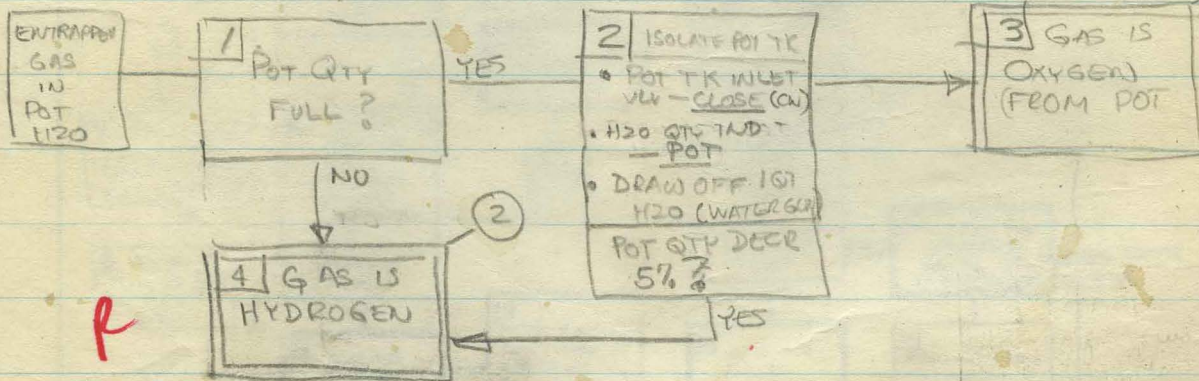 ENTRAPPED
GAS
IN
POT
H2O
1
POT QTY
FULL ?
YES
NO
2 ISOLATE POT TK
• POT TK INLET
VLV - CLOSE (CW)
• H2O QTY IND -
- POT
• DRAW OFF
H2O (WATER GUN)
POT QTY DECR
5% ?
YES
3 GAS IS
OXYGEN
(FROM POT
2
4 GAS IS
HYDROGEN
R